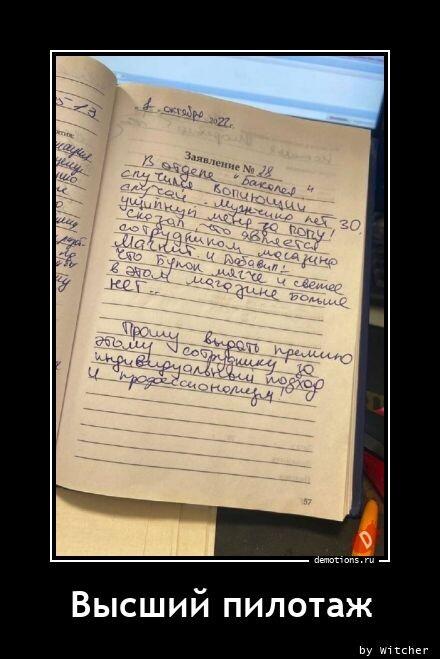 5-13
1 октября 2022г.
Заявление № 28
В отделе "Бакалея"
случился вопиющий
случай. мужчина лет 30,
ущипнул меня за попу!
сказал что является
сотрудником магазина
Магнит. и добавил!
что булок мягче и свежее
в этом магазине больше
нет...
Прошу выдать премию
этому сотруднику за
индивидуальный подход
и профессионализм!
57
demotions.ru
Высший пилотаж
by Witcher